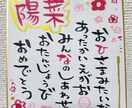 陽菜
おひさまみたいな
あったかいえがお
みんなのしあわせ
おたんじょうび
おめでとう